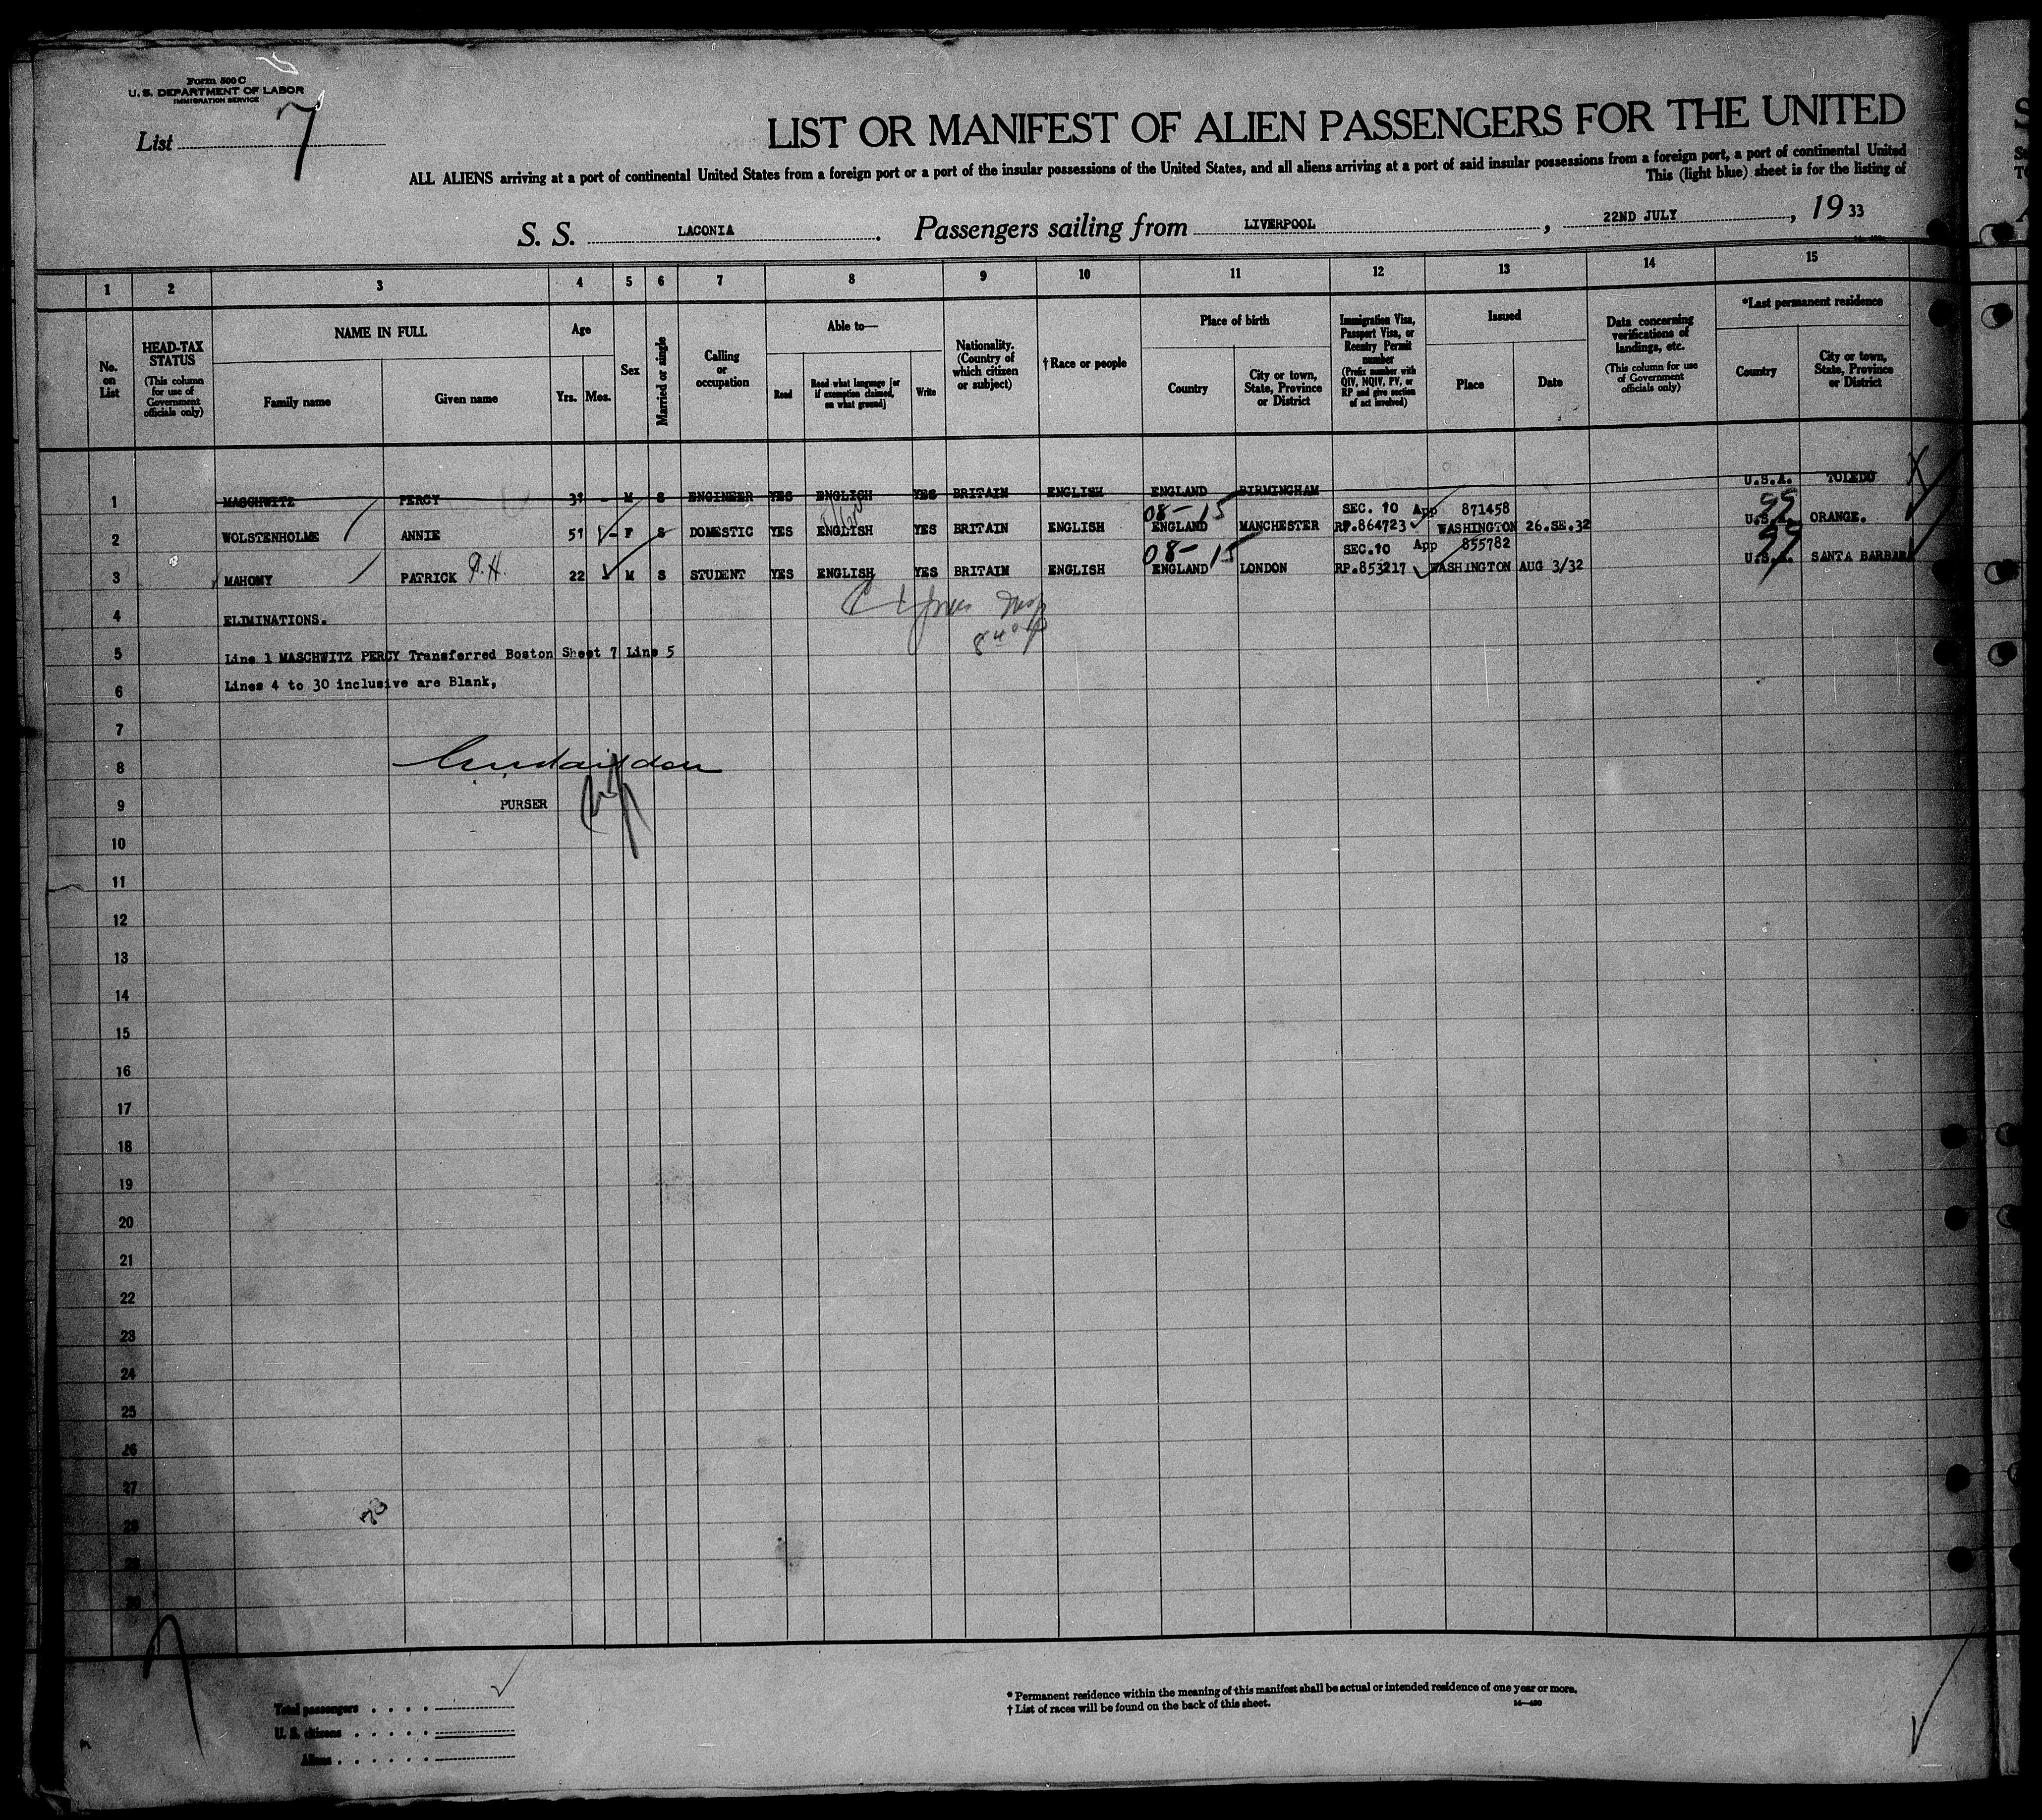 Form 500 C
U. S. DEPARTMENT OF LABOR
IMMIGRATION SERVICE
List 7
LIST OR MANIFEST OF ALIEN PASSENGERS FOR THE UNITED
ALL ALIENS arriving at a port of continental United States from a foreign port or a port of the insular possessions of the United States, and all aliens arriving at a port of said insular possessions from a foreign port, a port of continental United
This (light blue) sheet is for the listing of
S. S. LACONIA. Passengers sailing from LIVERPOOL, 22ND JULY, 19 33
1 2 3 4 5 6 7 8 9 10 11 12 13 14 15
No. on List
HEAD-TAX STATUS
(This column for use of Government officials only)
NAME IN FULL
Family name
Given name
Age
Yrs. Mos.
Sex
Married or single
Calling or occupation
Able to—
Read
Read what language [or if exemption claimed, on what ground]
Write
Nationality. (Country of which citizen or subject)
† Race or people
Place of birth
Country
City or town, State, Province or District
Immigration Visa, Passport Visa, or Reentry Permit number
(Prefix number with QIV, NQIV, PV, or RP and give section of act involved)
Issued
Place
Date
Data concerning verifications of landings, etc.
(This column for use of Government officials only)
*Last permanent residence
Country
City or town, State, Province or District
1 MASCHWITZ PERCY 39 - M S ENGINEER YES ENGLISH YES BRITAIN ENGLISH ENGLAND BIRMINGHAM U.S.A. TOLEDO
08-15 SEC. 10 App 871458 99
2 WOLSTENHOLME ANNIE 51 - F S DOMESTIC YES ENGLISH YES BRITAIN ENGLISH ENGLAND MANCHESTER RP.864723 WASHINGTON 26.SE.32 U.S.A. ORANGE.
08-15 SEC.10 App 855782 99
3 MAHONY PATRICK P.H. 22 M S STUDENT YES ENGLISH YES BRITAIN ENGLISH ENGLAND LONDON RP.853217 WASHINGTON AUG 3/32 U.S.A. SANTA BARBAR
4 ELIMINATIONS.
5 Line 1 MASCHWITZ PERCY Transferred Boston Sheet 7 Line 5
6 Lines 4 to 30 inclusive are Blank,
7
8
9 PURSER
10
11
12
13
14
15
16
17
18
19
20
21
22
23
24
25
26
27
28
29
30
Total passengers
U. S. citizens
Aliens
* Permanent residence within the meaning of this manifest shall be actual or intended residence of one year or more.
† List of races will be found on the back of this sheet.
14—430